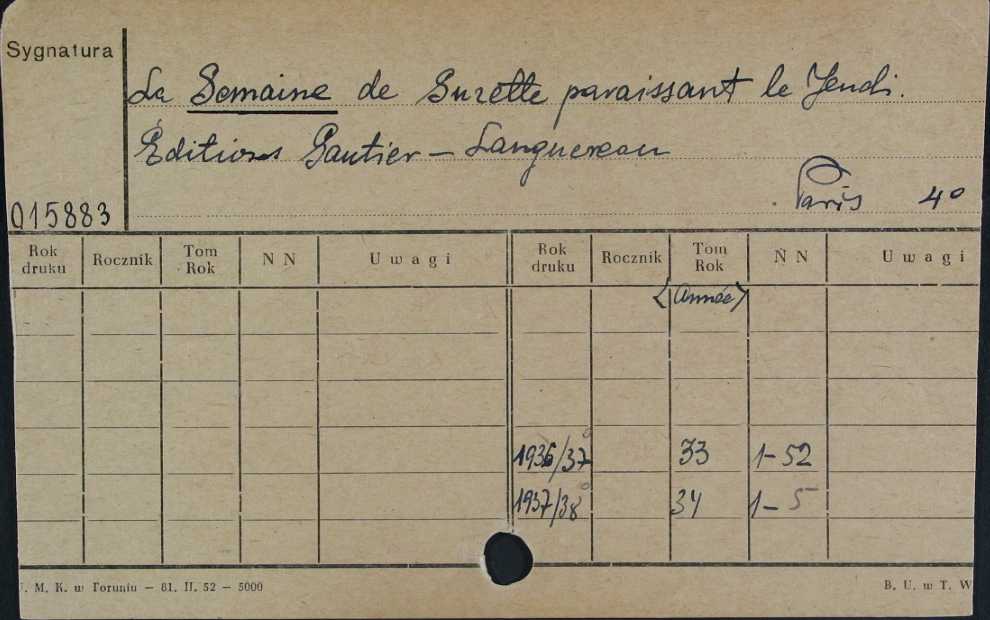 Sygnatura
La Semaine de Suzette paraissant le Jeudi.
Éditions Gautier – Languereau
Paris 4º
015883
Rok druku Rocznik Tom Rok N N Uwagi Rok druku Rocznik Tom Rok N N Uwagi
(Année)
1936/37 33 1-52
1937/38 34 1-5
. M. K. w Toruniu — 81. II. 52 — 5000 B. U. w T. W